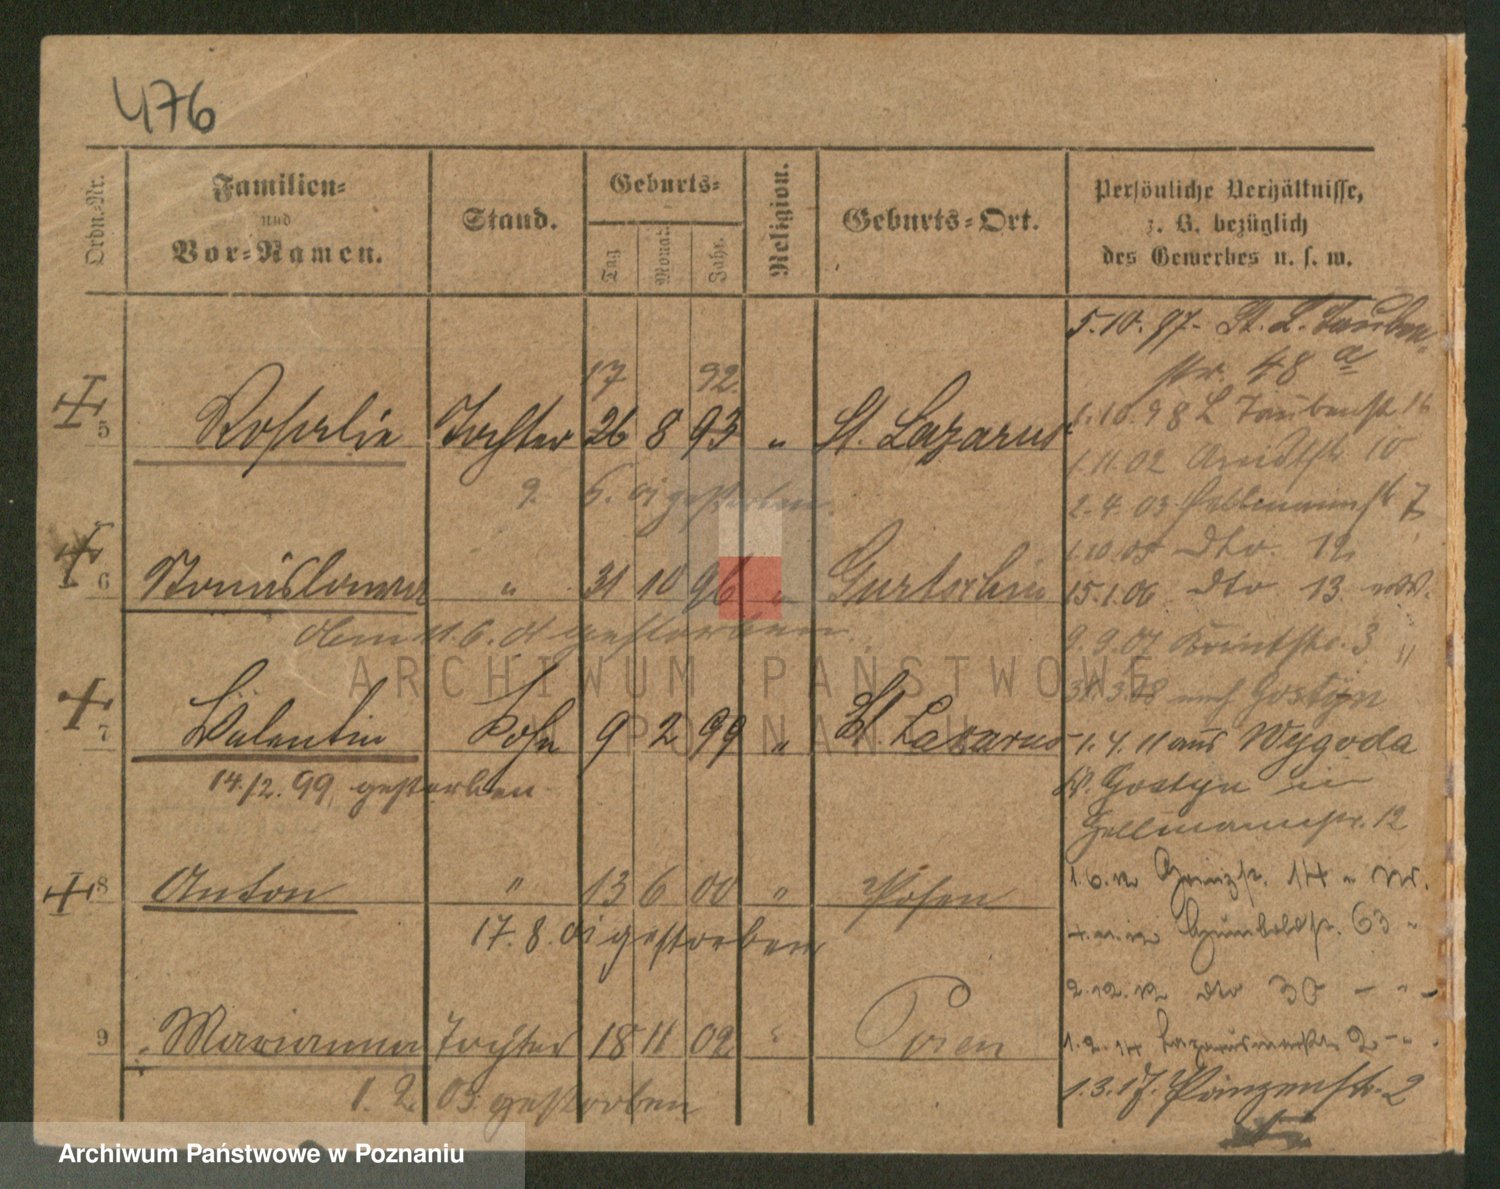 476
Ordn.-Nr.
Familien-
und
Vor-Namen.
Stand.
Geburts-
Tag
Monat.
Jahr.
Religion.
Geburts-Ort.
Persönliche Verhältnisse,
z. B. bezüglich
des Gewerbes u. s. w.
5.10.97. St. L. Tauben-
str. 48 a
17 92.
5 Rosalie Tochter 26 8 93 " St. Lazarus
1.10.98 L Taubenstr 16
1.11.02 Arndtstr 10
9. 6. 01 gestorben.
2.4.03 Hellmannstr 7
1.10.05 dto. 12
6 Stanislawa " 31 10 96 " Gurtschin
15.1.06 dto 13
11.6.01 gestorben
9.9.07 3 "
31.3.08 nach Gostyn
7 Valentin Sohn 9 2 99 " St Lazarus
1.4.11 aus Wygoda
Kr. Gostyn in
14.12.99 gestorben
Hellmannstr. 12
8 Anton " 13 6 00 " Posen
1.6.12 14
17.8.01 gestorben
63 "
2.12.12 dto 30 - " -
9 Marianna Tochter 18 11 02 " Posen
1.2.14 Lazarusmarkt 2 - "
1. 2. 03 gestorben
1.3.17. Prinzenstr. 2
ARCHIWUM PAŃSTWOWE
W POZNANIU
Archiwum Państwowe w Poznaniu